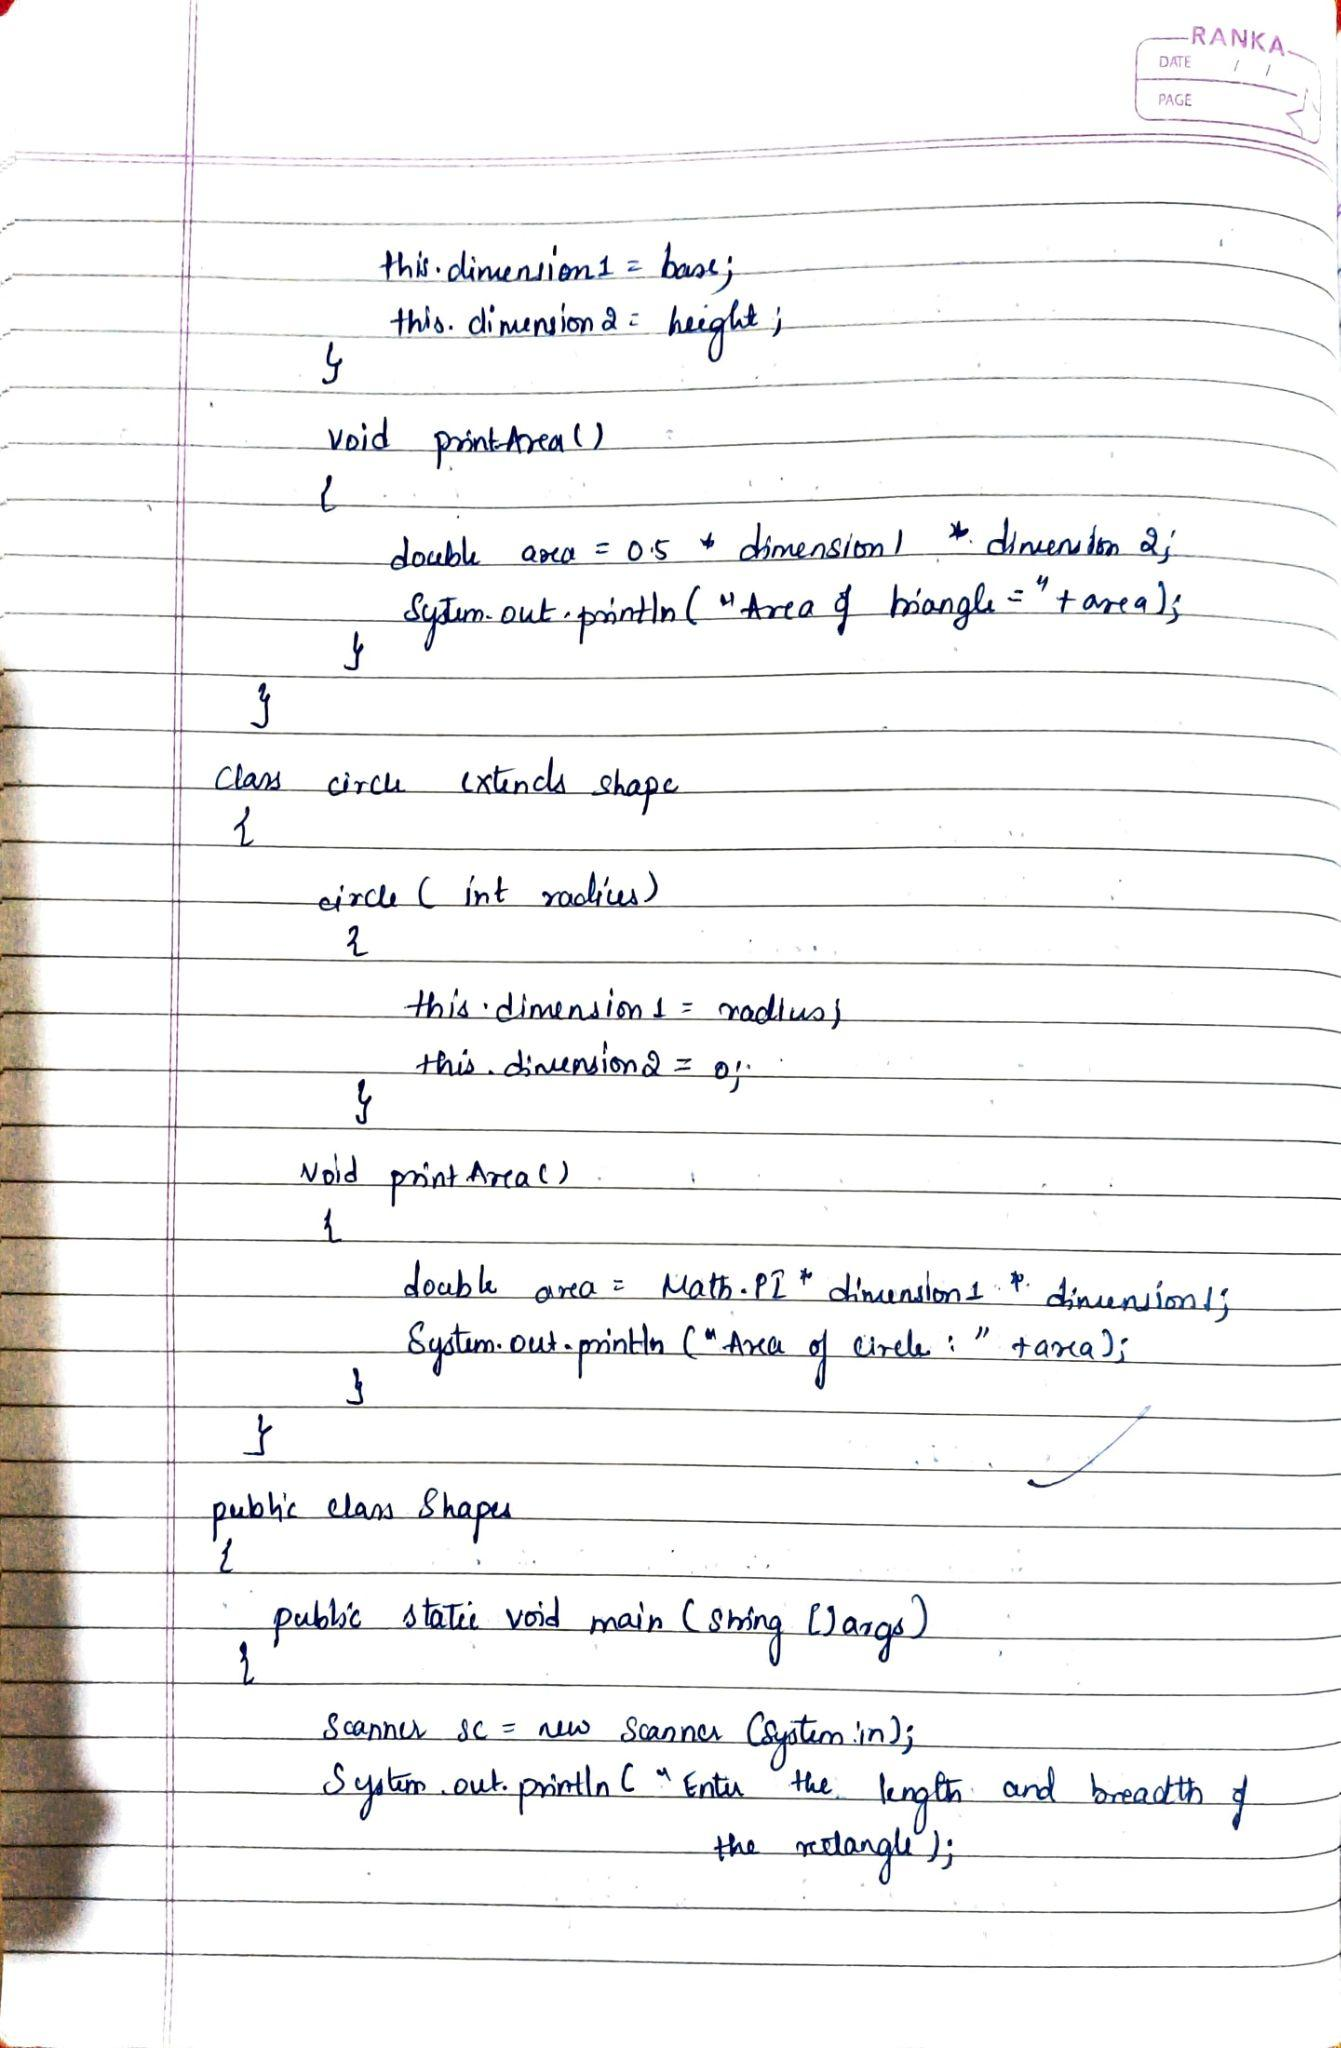 RANKA
DATE / /
PAGE
this.dimension1 = base;
this.dimension2 = height;
}
void printArea()
{
double area = 0.5 * dimension1 * dimension2;
System.out.println("Area of triangle =" + area);
}
}
Class circle extends shape
{
circle ( int radius)
{
this.dimension1 = radius;
this.dimension2 = 0;
}
void printArea()
{
double area = Math.PI * dimension1 * dimension1;
System.out.println ("Area of circle : " + area);
}
}
public class Shapes
{
public static void main (String []args)
{
Scanner sc = new Scanner (System.in);
System.out.println ( " Enter the length and breadth of
the rectangle");